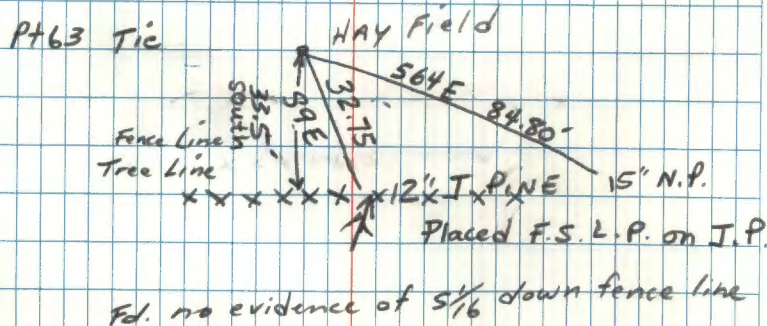 Pt63 Tie
HAY Field
S64E 84.80-
South
33.5'
S9E
32.75
Fence Line
Tree Line
12" J. PINE
15" N.P.
Placed F.S.L.P. on J.P.
Fd. no evidence of S 1/16 down fence line